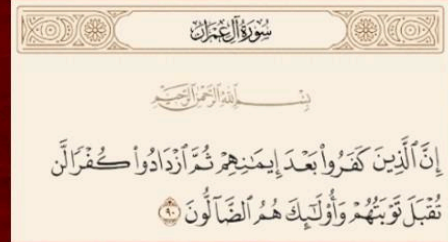 سُورَةُ آلِ عِمْرَانَ
بِسْمِ ٱللَّهِ ٱلرَّحْمَٰنِ ٱلرَّحِيمِ
إِنَّ ٱلَّذِينَ كَفَرُوا۟ بَعْدَ إِيمَـٰنِهِمْ ثُمَّ ٱزْدَادُوا۟ كُفْرًا لَّن
تُقْبَلَ تَوْبَتُهُمْ وَأُو۟لَـٰٓئِكَ هُمُ ٱلضَّآلُّونَ ٩٠